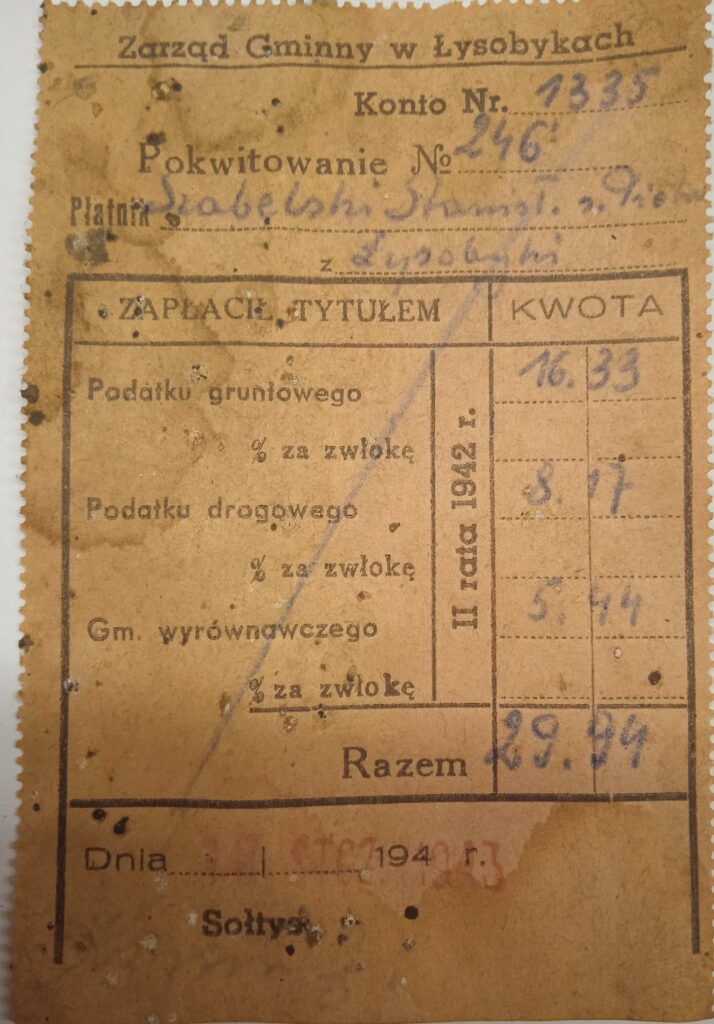 Zarząd Gminny w Łysobykach
Konto Nr. 1335
Pokwitowanie № 246
Płatnik Stanisł. s.
z Łysobyki
ZAPŁACIŁ TYTUŁEM KWOTA
Podatku gruntowego 16.33
% za zwłokę
Podatku drogowego 8.17
% za zwłokę
Gm. wyrównawczego 5.44
% za zwłokę
II rata 1942 r.
Razem 29.94
Dnia 194 r.
STYCZ. 1943
Sołtys